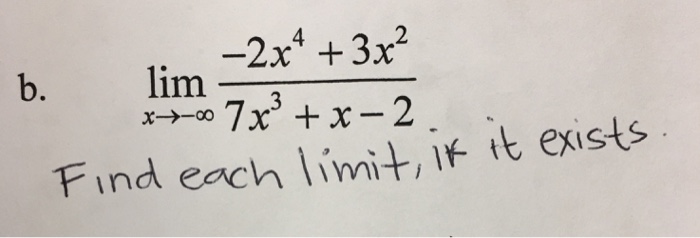 b. lim x→-∞ (-2x⁴ + 3x²) / (7x³ + x - 2)
Find each limit, if it exists.